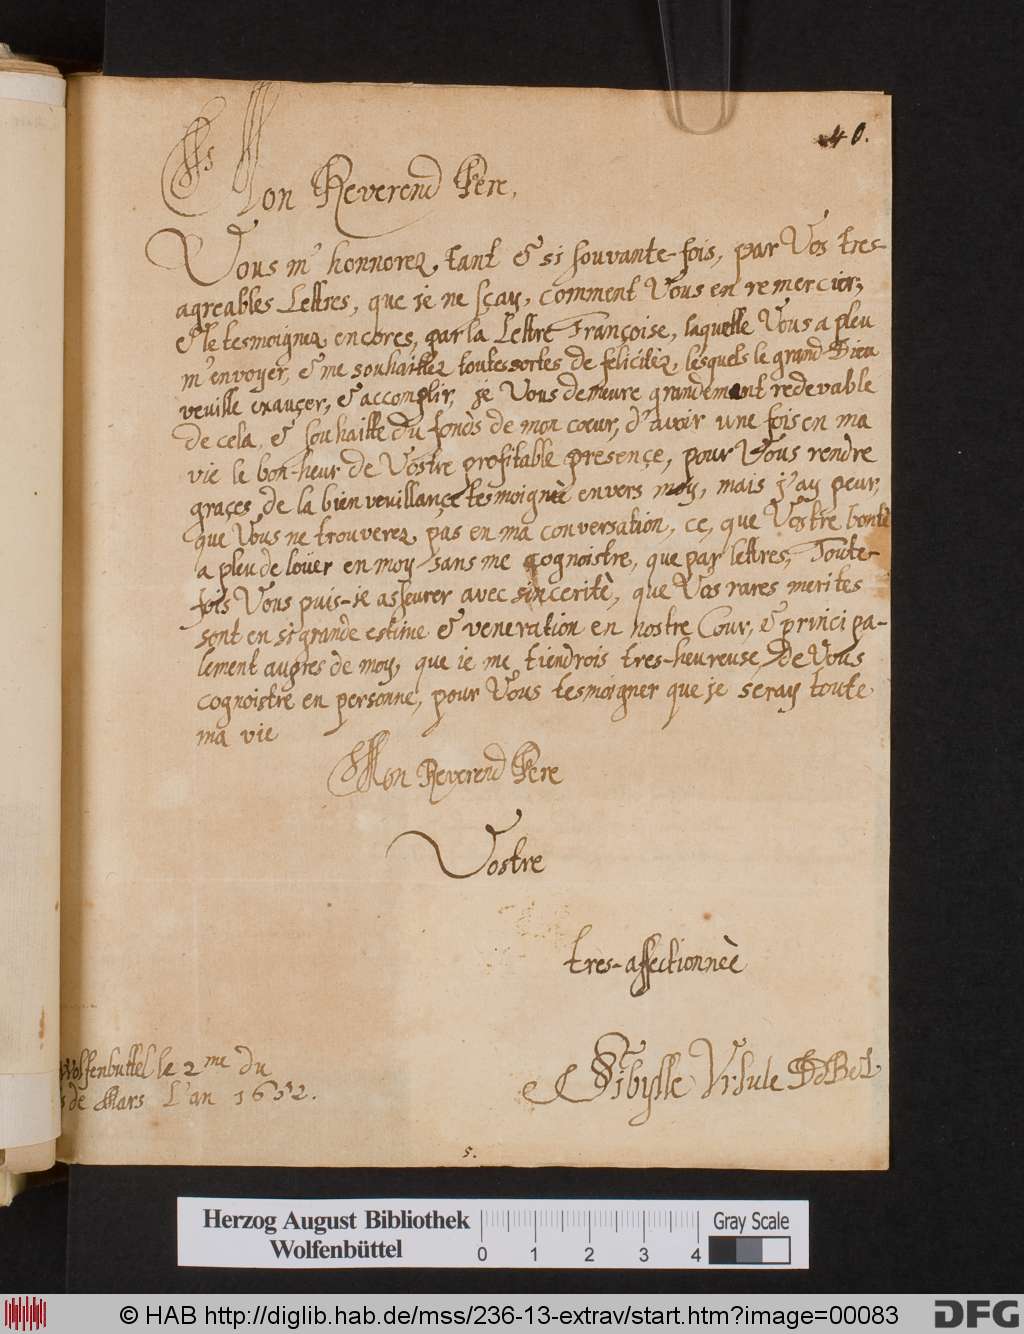 40.
Mon Reverend Pere,
Vous m'honnorez, tant & si souvante-fois, par Vos tres-
agreables Lettres, que je ne sçay, comment Vous en remercier,
& le tesmoignez encores, par la Lettre Françoise, laquelle Vous a pleu
m'envoyer, & me souhaittez toutes sortes de felicitez, lesquels le grand Dieu
veuille exauçer, & accomplir, je Vous demeure grandemant redevable
de cela, & souhaitte du fonds de mon cœur, d'avoir une fois en ma
vie le bon-heur de Vostre profitable presençe, pour Vous rendre
graçes de la bienveuillançe tesmoigneè envers moy, mais j'ay peur,
que Vous ne trouverez pas en ma conversation, ce, que Vostre bonté
a pleu de loüer en moy sans me cognoistre, que par lettres, Toute-
fois Vous puis-je asseurer avec sincerité, que Vos rares merites
sont en si grande estime & veneration en nostre Cour, & principa-
lement aupres de moy, que ie me tiendrois tres-heureuse, de Vous
cognoistre en personne, pour Vous tesmoigner que je seray toute
ma vie
Mon Reverend Pere
Vostre
tres-affectionneè
Sibylle Ursule DdBeL
Wolfenbuttel le 2me du
de Mars L'an 1652.
5.
Herzog August Bibliothek
Wolfenbüttel
0 1 2 3 4
Gray Scale
© HAB http://diglib.hab.de/mss/236-13-extrav/start.htm?image=00083
DFG